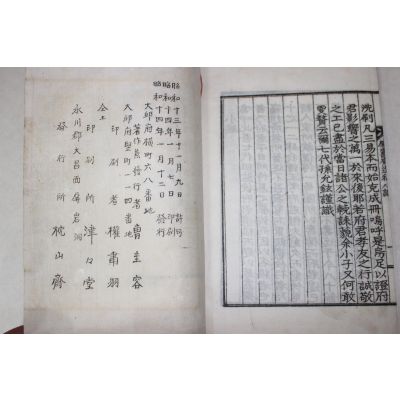 洗刷凡三易本而始克成冊嗚呼是焉足以證府
君影響之萬一於來後耶若府君孝友之行誠敬
之工已盡於當日諸公之輓誄藐余小子又何敢
更贅云爾一代孫允鉉謹識
昭和十三年十一月九日許可
昭和十四年一月七日印刷
昭和十四年一月十二日發行
大邱府橫町六八番地
著作兼發行者 曺圭容
大邱府竪町一一四番地
印刷者 權甯羽
仝上
印刷所 津々堂
永川郡大昌面屛岩洞
發行所 枕山齋